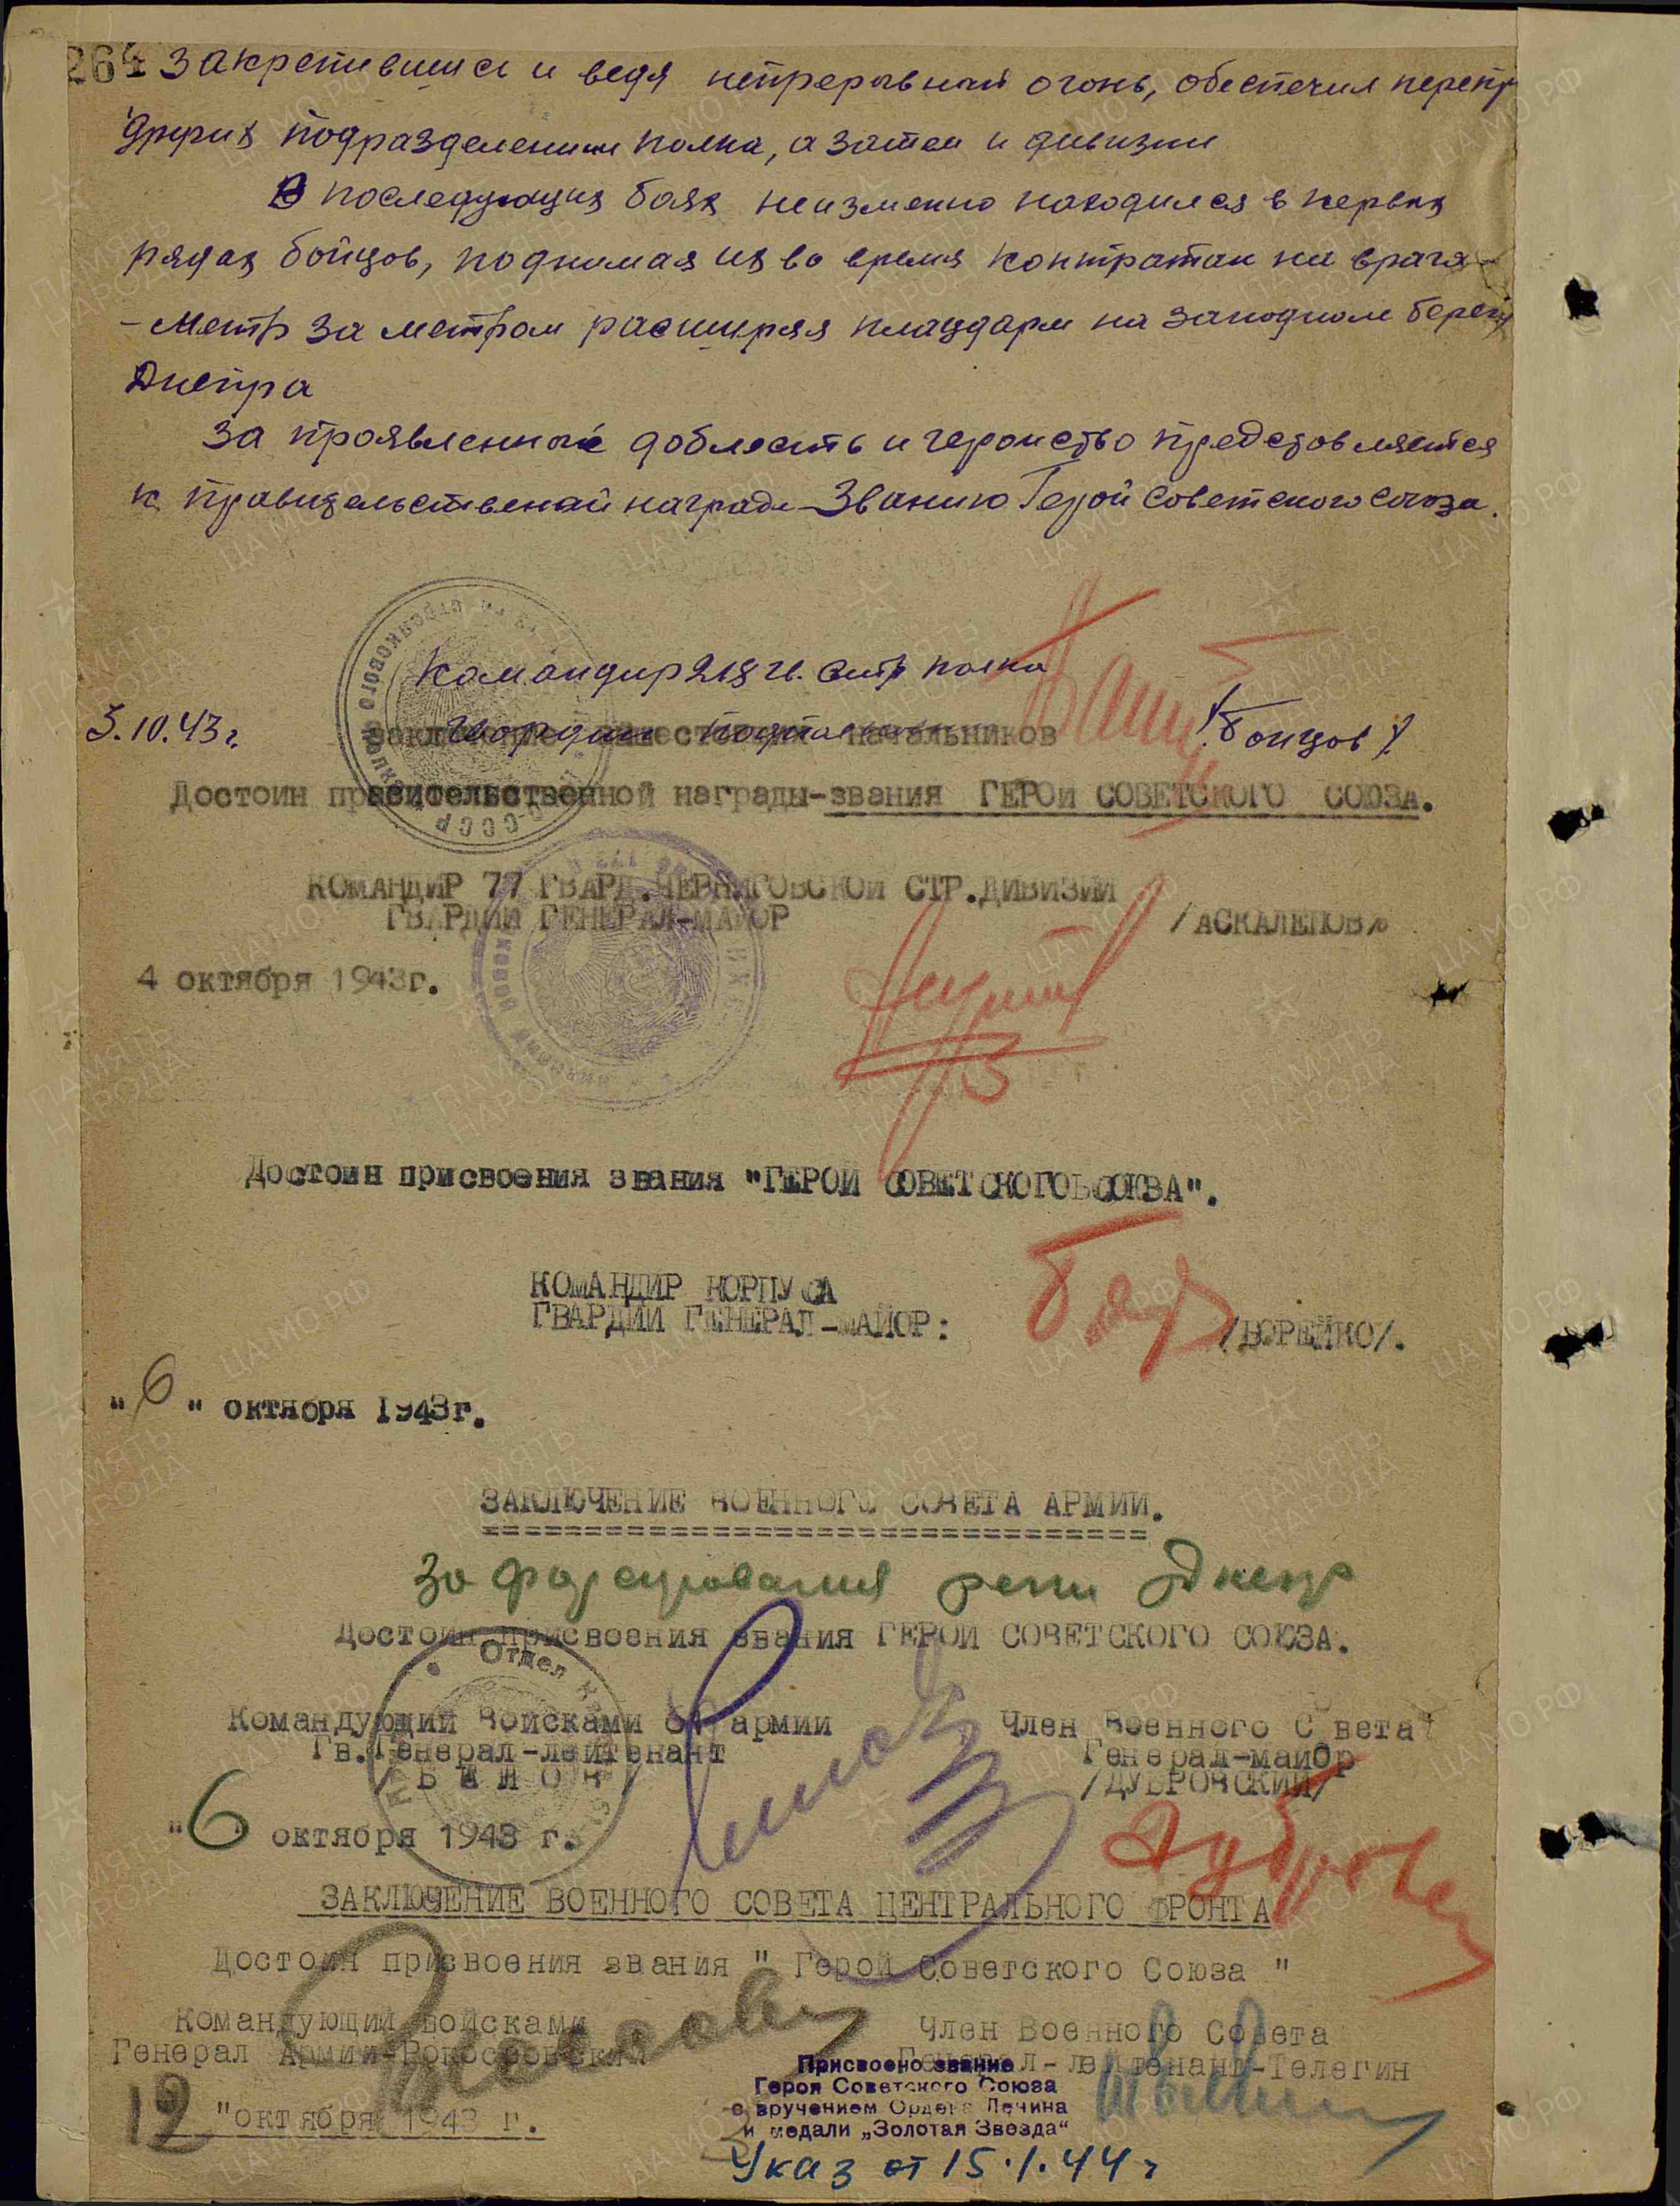 264 Закрепившись и ведя непрерывный огонь, обеспечил перепр
других подразделений полка, а затем и дивизии
В последующих боях неизменно находился в первых
рядах бойцов, поднимая их во время контратак на врага -
- Метр за метром расширяя плацдарм на западном берегу
Днепра
За проявленные доблесть и геройство представляется
к правительственной награде - Званию Герой Советского Союза.
Командир 218 гв. стр полка
Гвардии подполковник
/Бойцов/
3.10.43г.
заключение вышестоящих начальников
Достоин правительственной награды-звания ГЕРОИ СОВЕТСКОГО СОЮЗА.
КОМАНДИР 77 ГВАРД.ЧЕРНИГОВСКОЙ СТР.ДИВИЗИИ
ГВАРДИИ ГЕНЕРАЛ-МАЙОР
/АСКАЛЕПОВ/
4 октября 1943г.
Достоин присвоения звания "ГЕРОЙ СОВЕТСКОГО СОЮЗА".
КОМАНДИР КОРПУСА
ГВАРДИИ ГЕНЕРАЛ-МАЙОР:
/БОРЕЙКО/.
"6" октября 1943г.
ЗАКЛЮЧЕНИЕ ВОЕННОГО СОВЕТА АРМИИ.
За форсирования реки Днепр
Достоин присвоения звания ГЕРОЙ СОВЕТСКОГО СОЮЗА.
Отдел
Командующий Войсками 61 армии
Гв.Генерал-лейтенант
/БЕЛОВ/
Член Военного Совета
Генерал-майор
/ДУБРОВСКИЙ/
"6" октября 1943 г.
ЗАКЛЮЧЕНИЕ ВОЕННОГО СОВЕТА ЦЕНТРАЛЬНОГО ФРОНТА
Достоин присвоения звания " Герой Советского Союза "
Командующий войсками
Генерал Армии-Рокоссовский
Член Военного Совета
Генерал-лейтенант-Телегин
12 "октября 1943 г.
Присвоено звание
Героя Советского Союза
с вручением Ордена Ленина
и медали „Золотая Звезда“
Указ от 15.1.44 г